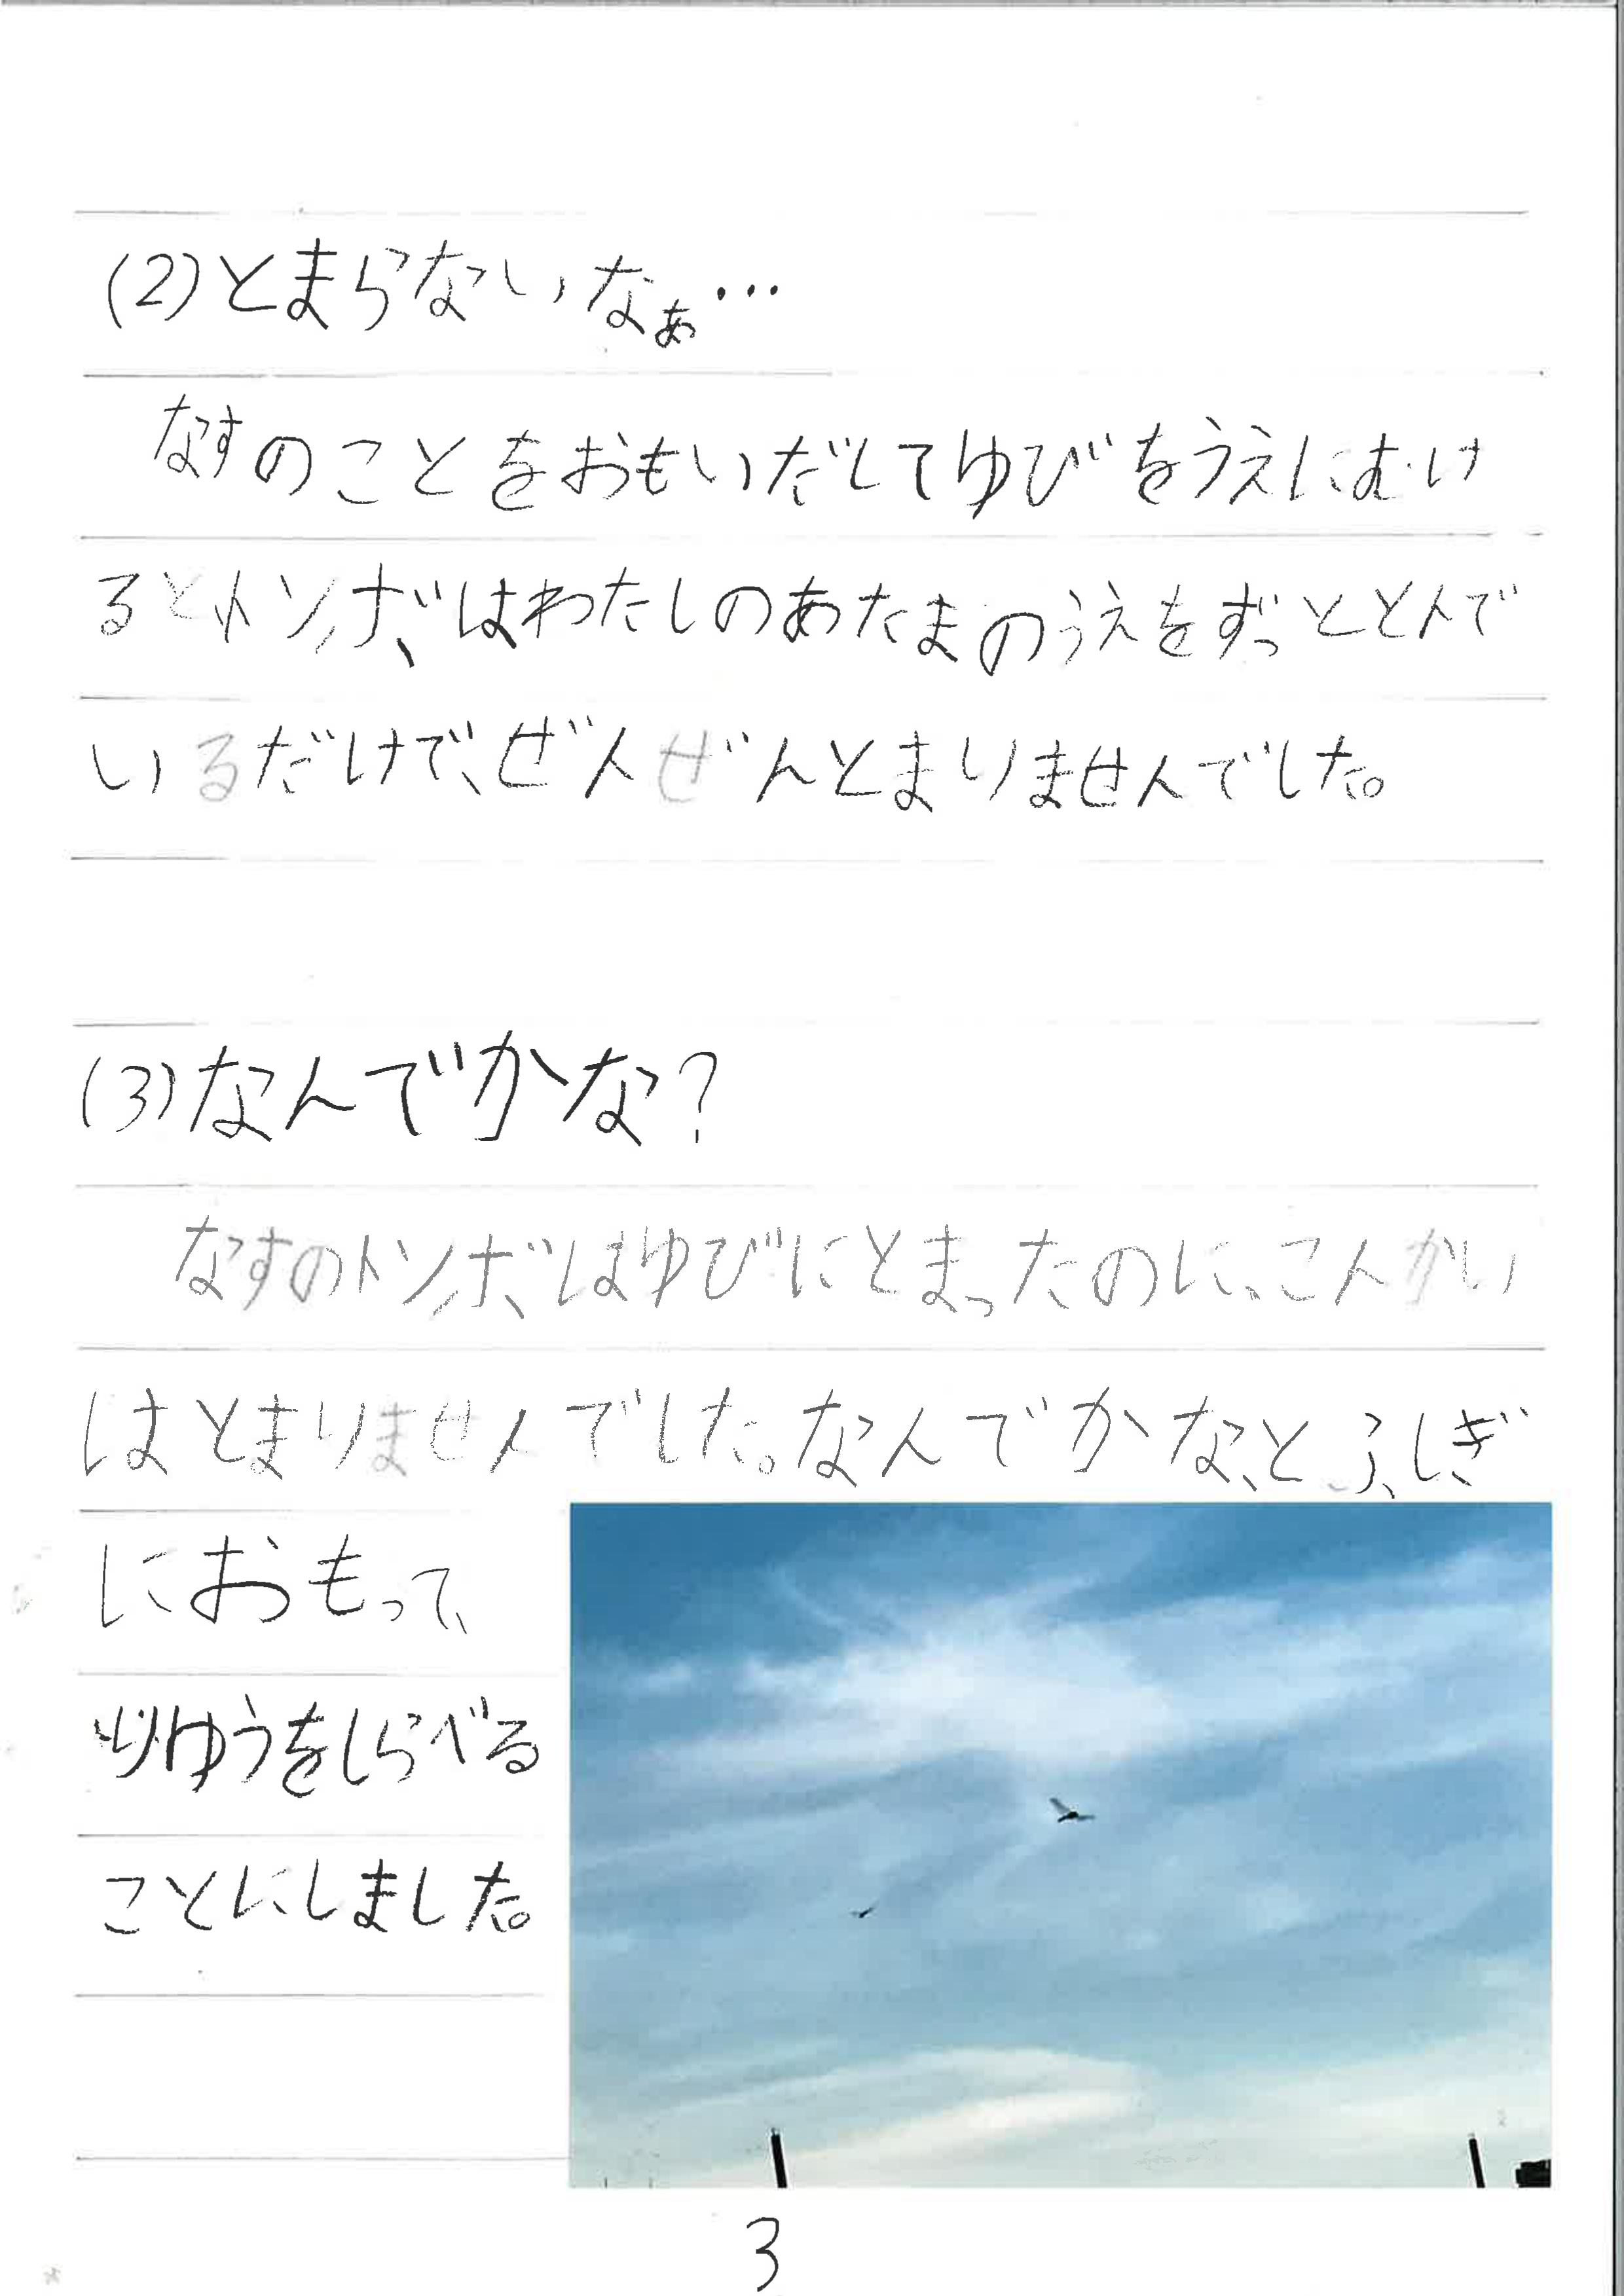 (2)とまらないなぁ…
なすのことをおもいだしてゆびをうえにむけ
るとトンボはわたしのあたまのうえをずっととんで
いるだけで、ぜんぜんとまりませんでした。
(3)なんでかな?
なすのトンボはゆびにとまったのに、こんかい
はとまりませんでした。なんでかな、とふしぎ
におもって、
りゆうをしらべる
ことにしました。
3